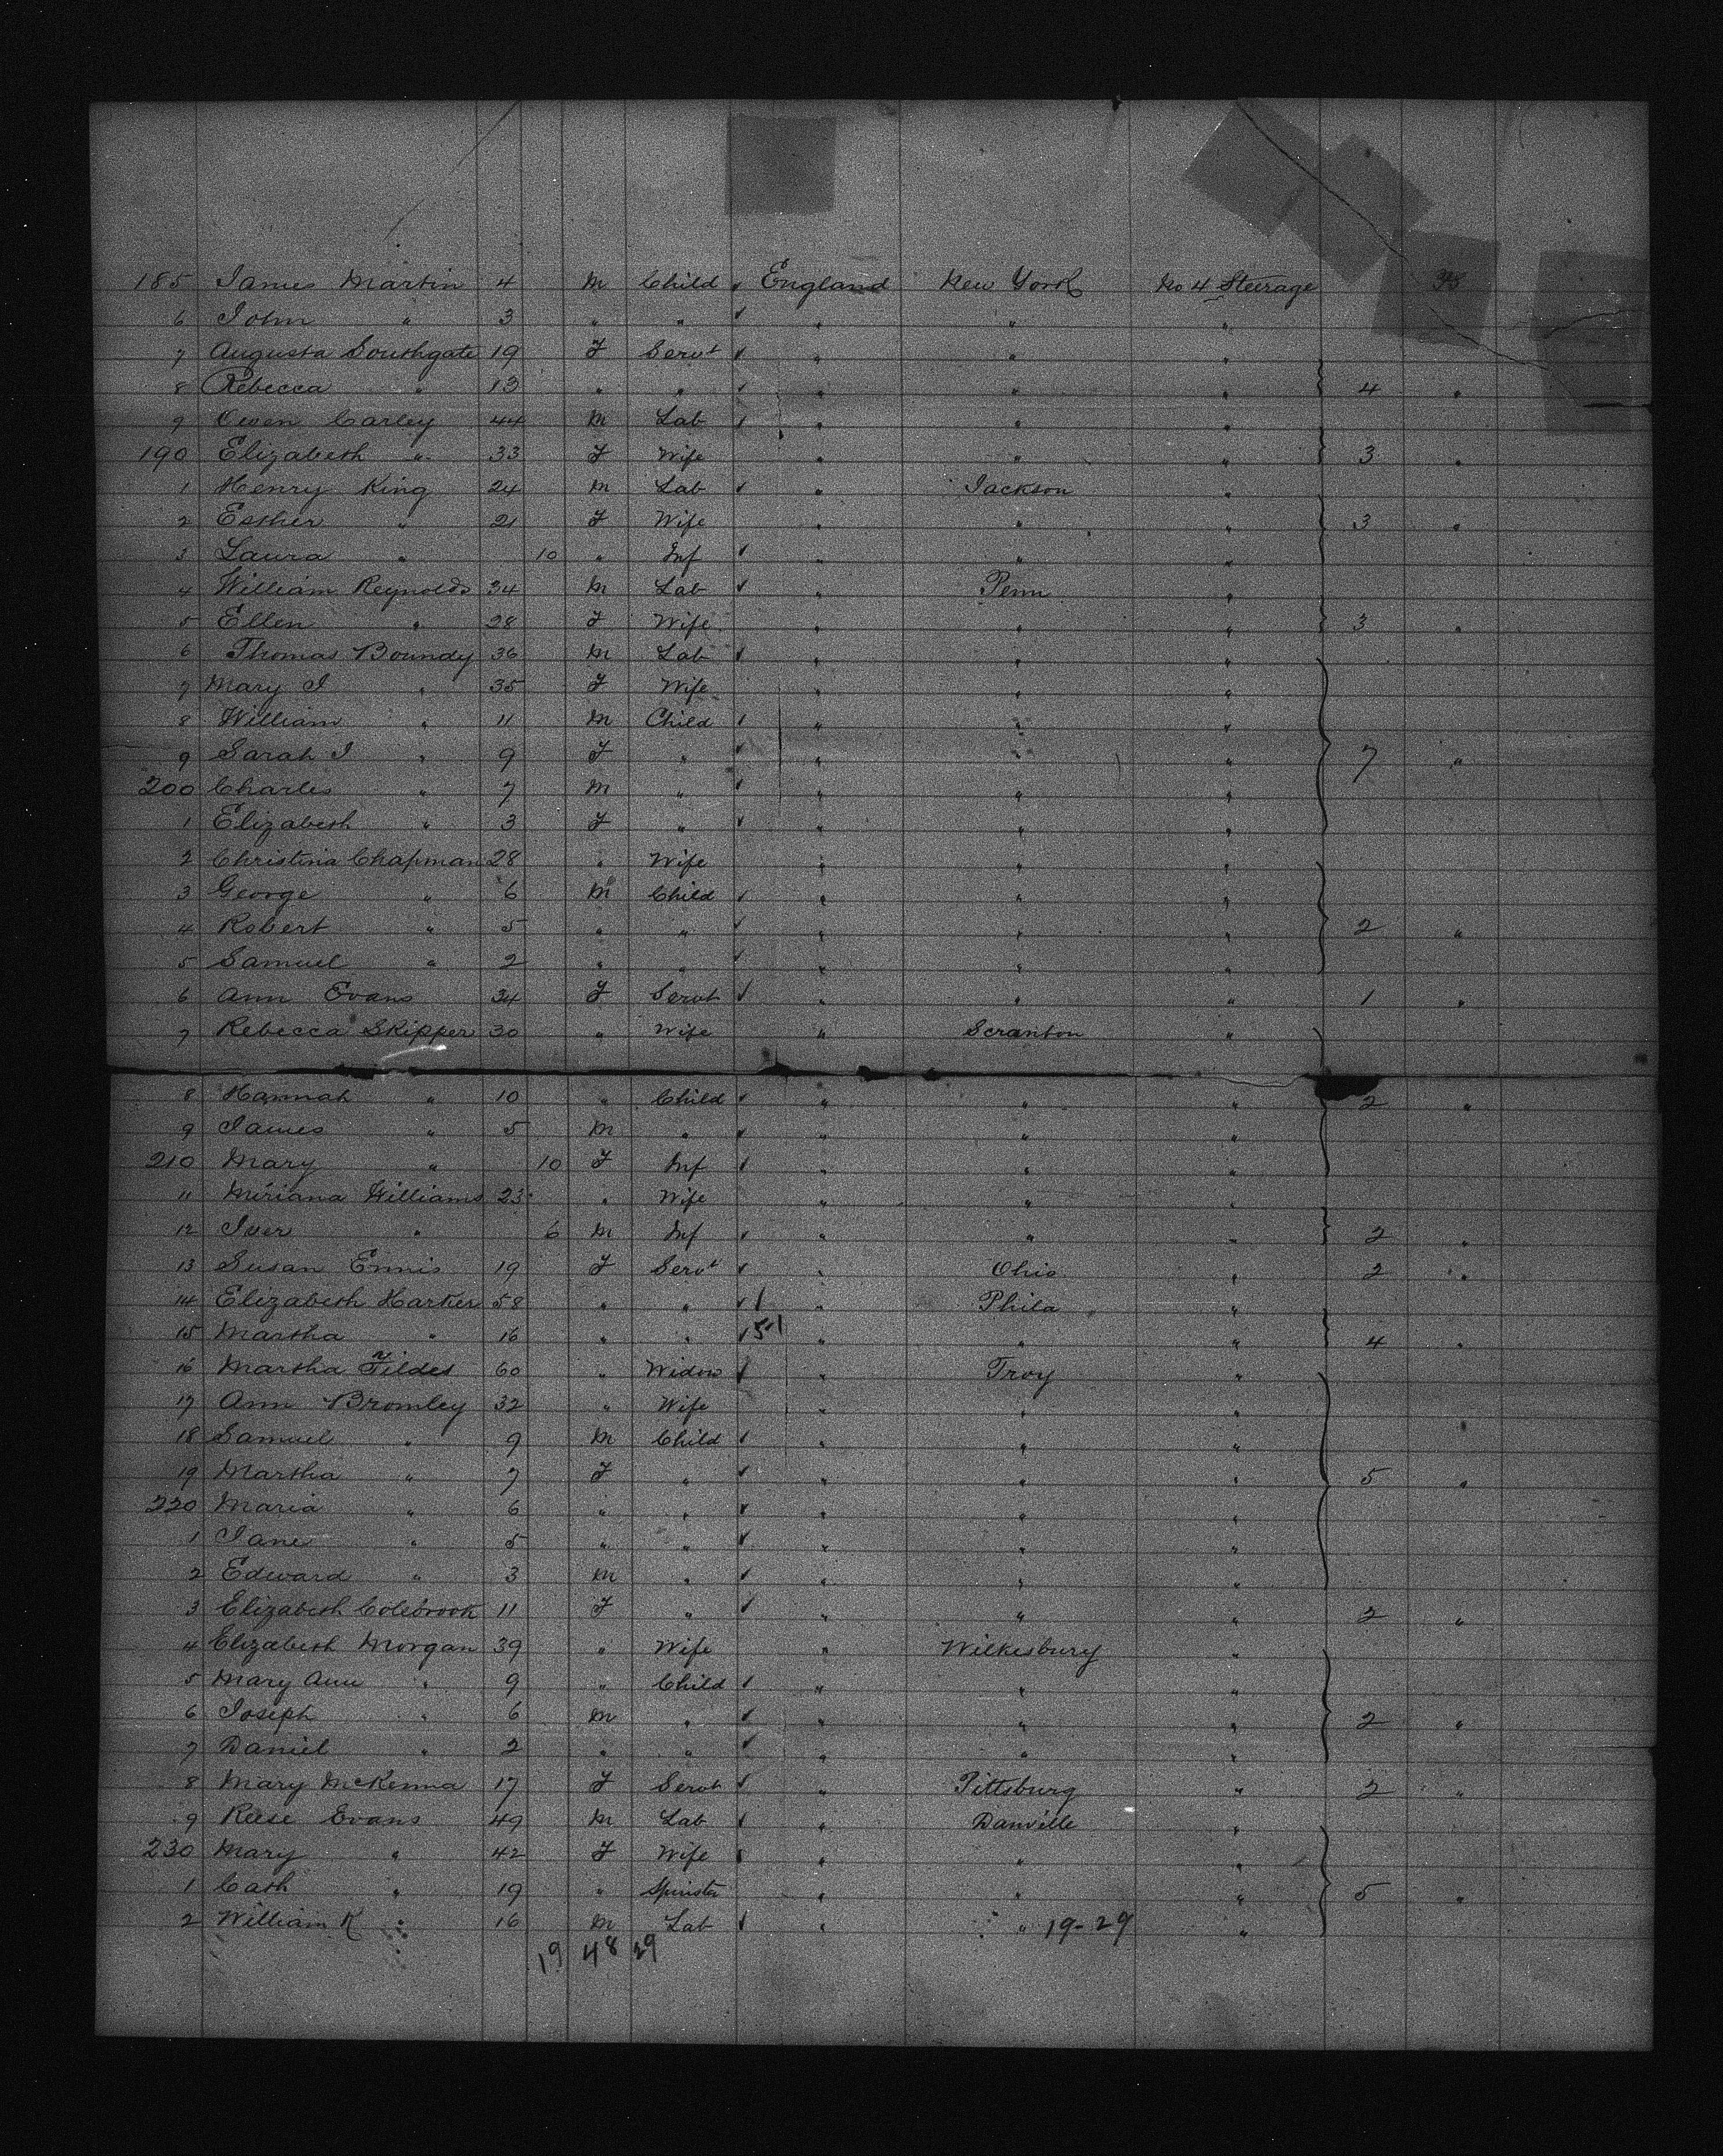 185 James Martin 4 M Child England New York No 4 Steerage
6 John " 3 " " " " "
7 Augusta Southgate 19 F Servt " " "
8 Rebecca " 13 " " " " " 4 "
9 Owen Carley 44 M Lab " " "
190 Elizabeth " 33 F Wife " " " 3 "
1 Henry King 24 M Lab " Jackson "
2 Esther " 21 F Wife " " " 3 "
3 Laura " 10 " Inf " " "
4 William Reynolds 34 M Lab " Penn "
5 Ellen " 28 F Wife " " " 3 "
6 Thomas Boundy 36 M Lab " " "
7 Mary J " 35 F Wife " " "
8 William " 11 M Child " " "
9 Sarah J " 9 F " " " " 7 "
200 Charles " 7 M " " " "
1 Elizabeth " 3 F " " " "
2 Christina Chapman 28 " Wife " " "
3 George " 6 M Child " " "
4 Robert " 5 " " " " " 2 "
5 Samuel " 2 " " " " "
6 Ann Evans 34 F Servt " " " 1 "
7 Rebecca Skipper 30 " Wife " Scranton "
8 Hannah " 10 " Child " " " 2 "
9 James " 5 M " " " "
210 Mary " 10 F Inf " " "
11 Miriana Williams 23 " Wife " " "
12 Iver " 6 M Inf " " " 2 "
13 Susan Ennis 19 F Servt " Ohio " 2 "
14 Elizabeth Harker 58 " " " Phila "
15 Martha " 16 " " 51 " " " 4 "
16 Martha Fildes 60 " Widow " Troy "
17 Ann Bromley 32 " Wife " " "
18 Samuel " 9 M Child " " "
19 Martha " 7 F " " " " 5 "
220 Maria " 6 " " " " "
1 Jane " 5 " " " " "
2 Edward " 3 M " " " "
3 Elizabeth Colebrook 11 F " " " " 2 "
4 Elizabeth Morgan 39 " Wife " Wilkesbury "
5 Mary Ann " 9 " Child " " "
6 Joseph " 6 M " " " " 2 "
7 Daniel " 2 " " " " "
8 Mary McKenna 17 F Servt " Pittsburg " 2 "
9 Reese Evans 49 M Lab " Danville "
230 Mary " 42 F Wife " " "
1 Cath " 19 " Spinster " " " 5 "
2 William R " 16 M Lab " " 19-29 "
19 48 29